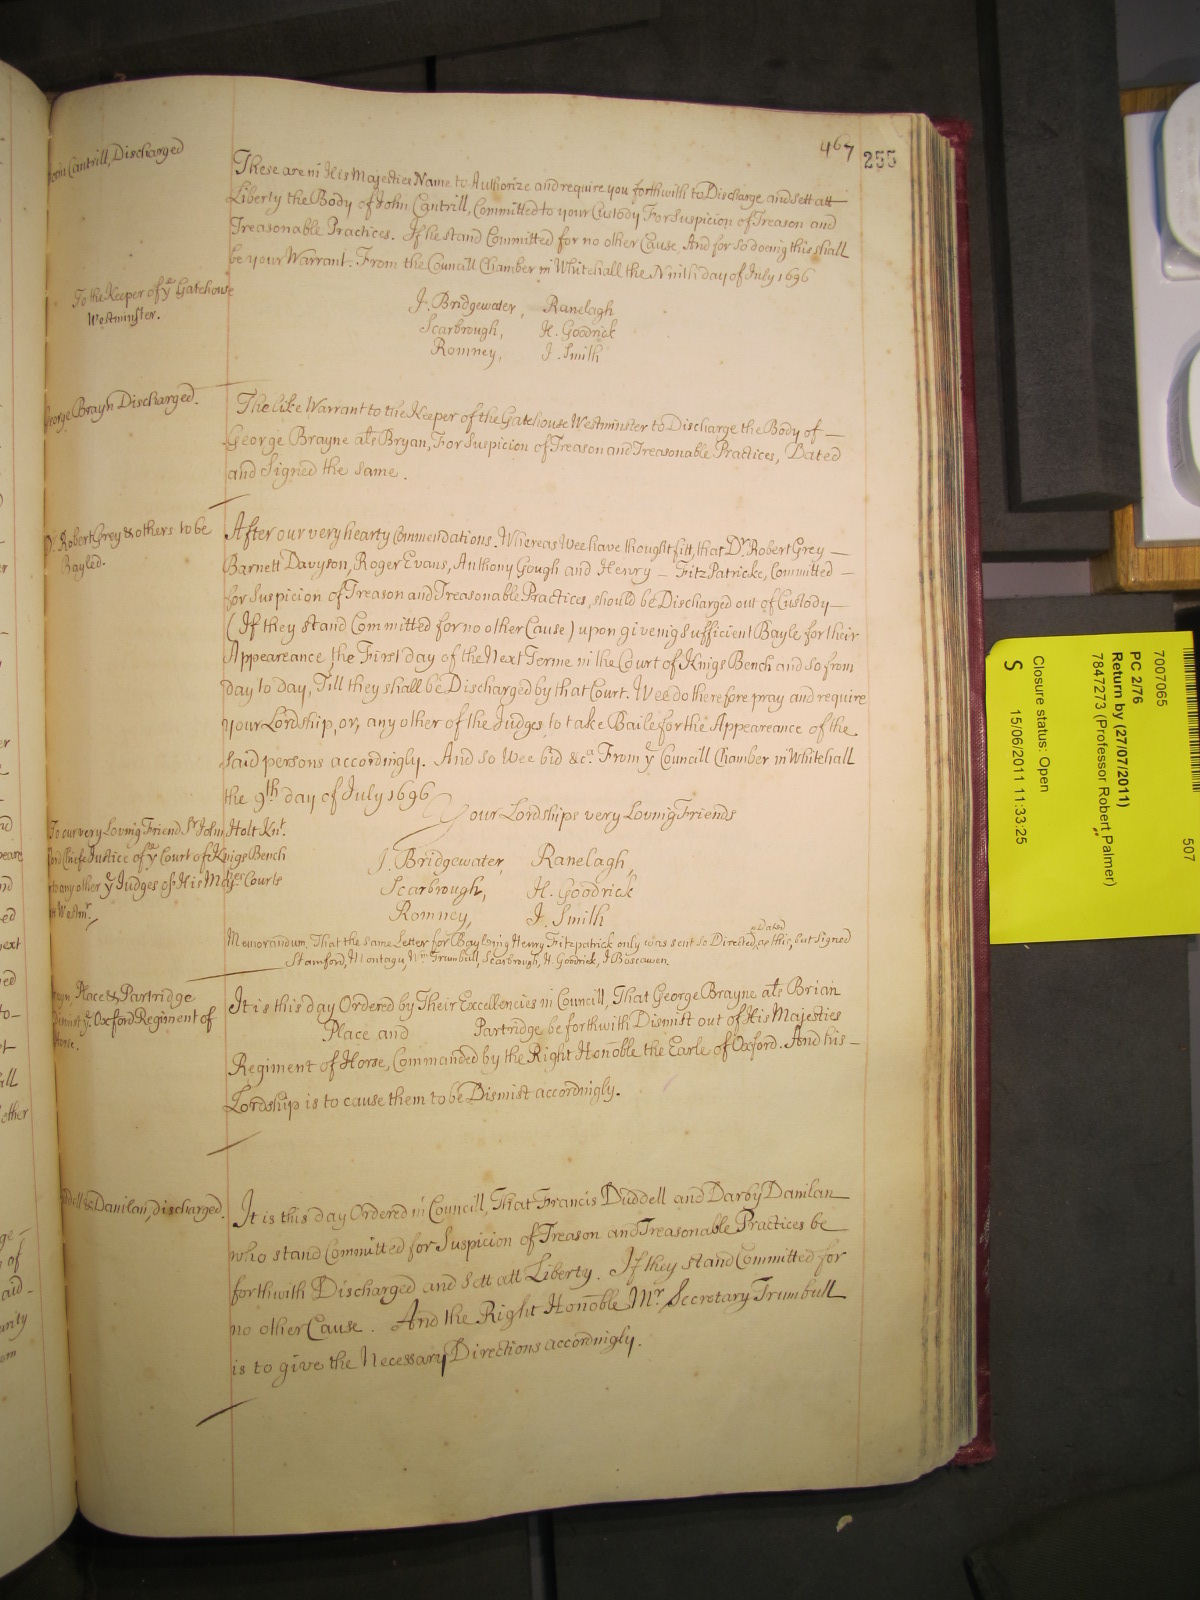 467 255
John Cantrill, Discharged
These are in His Majesties Name to Authorize and require you forthwith to Discharge and sett att
Liberty the Body of John Cantrill, Committed to your Custody For Suspicion of Treason and
Treasonable Practices. If he stand Committed for no other Cause. And for so doeing this shall
be your Warrant. From the Councill Chamber in Whitehall the Ninth day of July 1696
To the Keeper of ye Gatehouse
Westminster.
J. Bridgewater, Ranelagh
Scarbrough, H. Goodrick
Romney, J. Smith
George Brayn Discharged.
The like Warrant to the Keeper of the Gatehouse Westminster to Discharge the Body of —
George Brayne als Bryan, For Suspicion of Treason and Treasonable Practices, Dated
and Signed the same.
Dr. Robert Grey & others to be
Bayled.
After our very hearty Commendations. Whereas Wee have thought fitt, that Dr. Robert Grey —
Barnett Davyson, Roger Evans, Anthony Gough and Henry — FitzPatricke, Committed —
for Suspicion of Treason and Treasonable Practices, should be Discharged out of Custody —
(If they stand Committed for no other Cause) upon giveing sufficient Bayle for their
Appeareance the First day of the Next Terme in the Court of Kings Bench and so from
day to day, Till they shall be Discharged by that Court. Wee do therefore pray and require
your Lordship, or, any other of the Judges to take Baile for the Appeareance of the
said persons accordingly. And so Wee bid &ca. From ye Councill Chamber in Whitehall
the 9th day of July 1696
Your Lordships very Loving Friends
To our very Loving Friend Sr John Holt Knt.
Lord Chiefe Justice of ye Court of Kings Bench
or to any other ye Judges of His Majes Courts
at Westmr.
J. Bridgewater, Ranelagh,
Scarbrough, H. Goodrick
Romney, J. Smith
Memorandum. That the same Letter for Bayleing Henry Fitzpatrick only was sent so Directed, & Dated as this, but Signed
Stamford, Montagu, Wm Trumbull, Scarbrough, H. Goodrick, J Boscawen.
Place & Partridge
Dismist ye Oxford Regiment of
Horse.
It is this day Ordered by Their Excellencies in Councill, That George Brayne als Brian
Place and Partridge be forthwith Dismist out of His Majesties
Regiment of Horse, Commanded by the Right Honoble the Earle of Oxford. And his —
Lordship is to cause them to be Dismist accordingly.
& Danilan, discharged.
It is this day Ordered in Councill, That Francis Duddell and Darby Danilan
who stand Committed for Suspicion of Treason and Treasonable Practices be
forthwith Discharged and sett att Liberty. If they stand Committed for
no other Cause. And the Right Honoble Mr. Secretary Trumbull
is to give the Necessary Directions accordingly.
7007065 507
PC 2/76
Return by (27/07/2011)
7847273 (Professor Robert Palmer)
Closure status: Open
S 15/06/2011 11:33:25